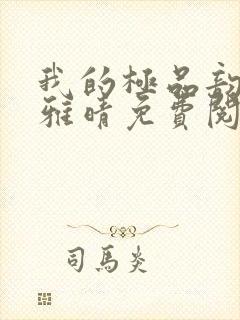 我的極品
雅晴免費閱
司馬炎